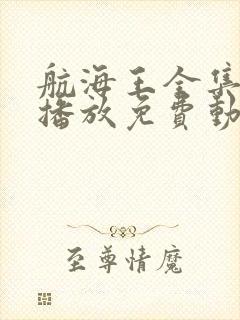 航海王全集
播放免費動
至尊情魔